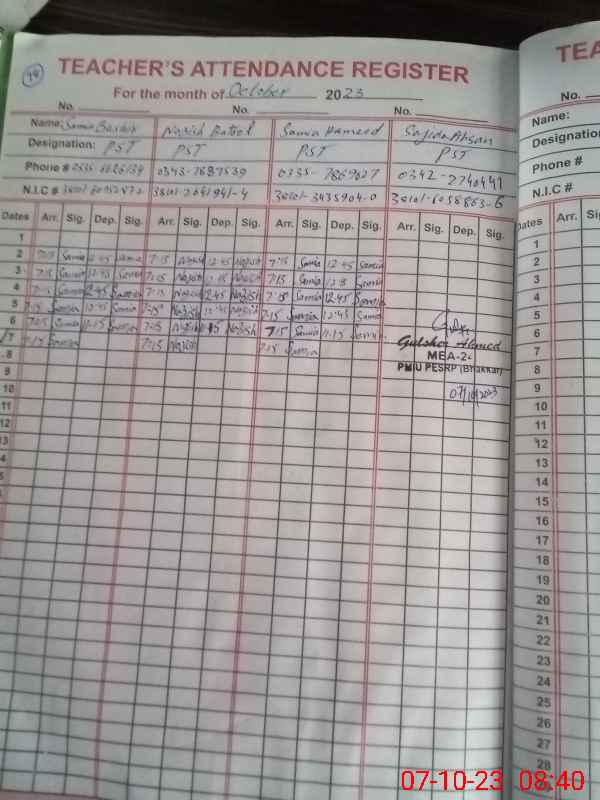 44
TEACHER'S ATTENDANCE REGISTER
For the month of October 2023
No. No. No.
Name: Samia Bashir Nazish Batool Samia Hameed Sajida Ahsan
Designation: PST PST PST PST
Phone # 0343-7887539 0335-7869027 0342-2740441
N.I.C # 38101-2641941-4 38101-3435904-0 38101-6058863-6
Dates Arr. Sig. Dep. Sig. Arr. Sig. Dep. Sig. Arr. Sig. Dep. Sig. Arr. Sig. Dep. Sig.
1
2 7:15 Samia 12:45 Samia 7:15 Nazish 12:45 Nazish 7:15 Samia 12:45 Samia
3 7:15 Samia 12:45 Samia 7:15 Nazish 12:45 Nazish 7:15 Samia Samia
4 7:15 Samia 12:45 Samia 7:15 Nazish 12:45 Nazish 7:15 Samia 12:45 Samia
5 7:15 Samia 12:45 Samia 7:15 Nazish 12:45 Nazish 7:15 Samia 12:45 Samia
6 7:15 Samia 11:15 Samia 7:15 Nazish 11:15 Nazish 7:15 Samia 11:15 Samia
7 7:15 Samia 7:15 Nazish 7:15 Samia
8
9
10
11
12
13
Gulsher Ahmed
MEA-24
PMIU PESRP (Bhakkar)
07/10/2023
TEA
No.
Name:
Designation
Phone #
N.I.C #
Dates Arr. Sig.
1
2
3
4
5
6
7
8
9
10
11
12
13
14
15
16
17
18
19
20
21
22
23
24
25
26
27
28
07-10-23 08:40